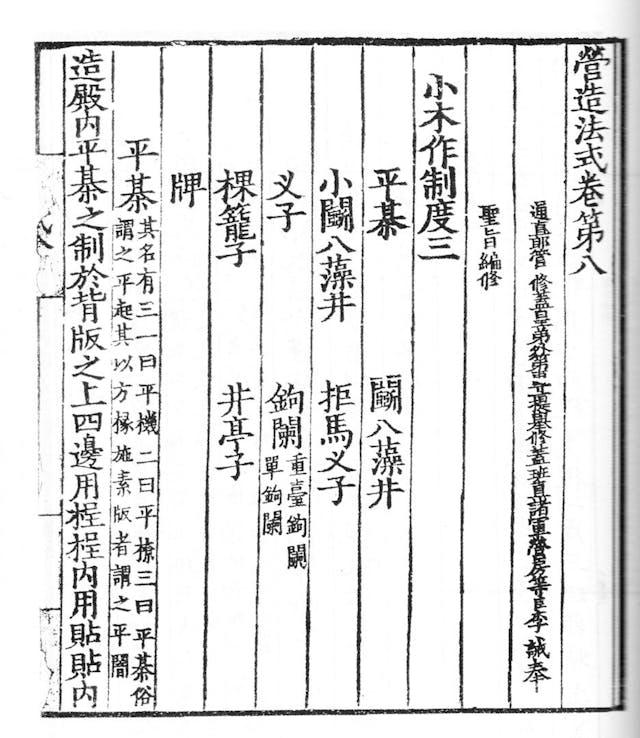 營造法式卷第八
通直郎管修蓋皇弟外第專一提舉修蓋班直諸軍營房等臣李誡奉
聖旨編修
小木作制度三
平棊 鬭八藻井
小鬭八藻井 拒馬义子
义子 鉤闌重臺鉤闌單鉤闌
棵籠子 井亭子
牌
平棊其名有三一曰平機二曰平橑三曰平棊俗謂之平起其以方椽施素版者謂之平闇
造殿内平棊之制於背版之上四邊用桯桯内用貼貼内